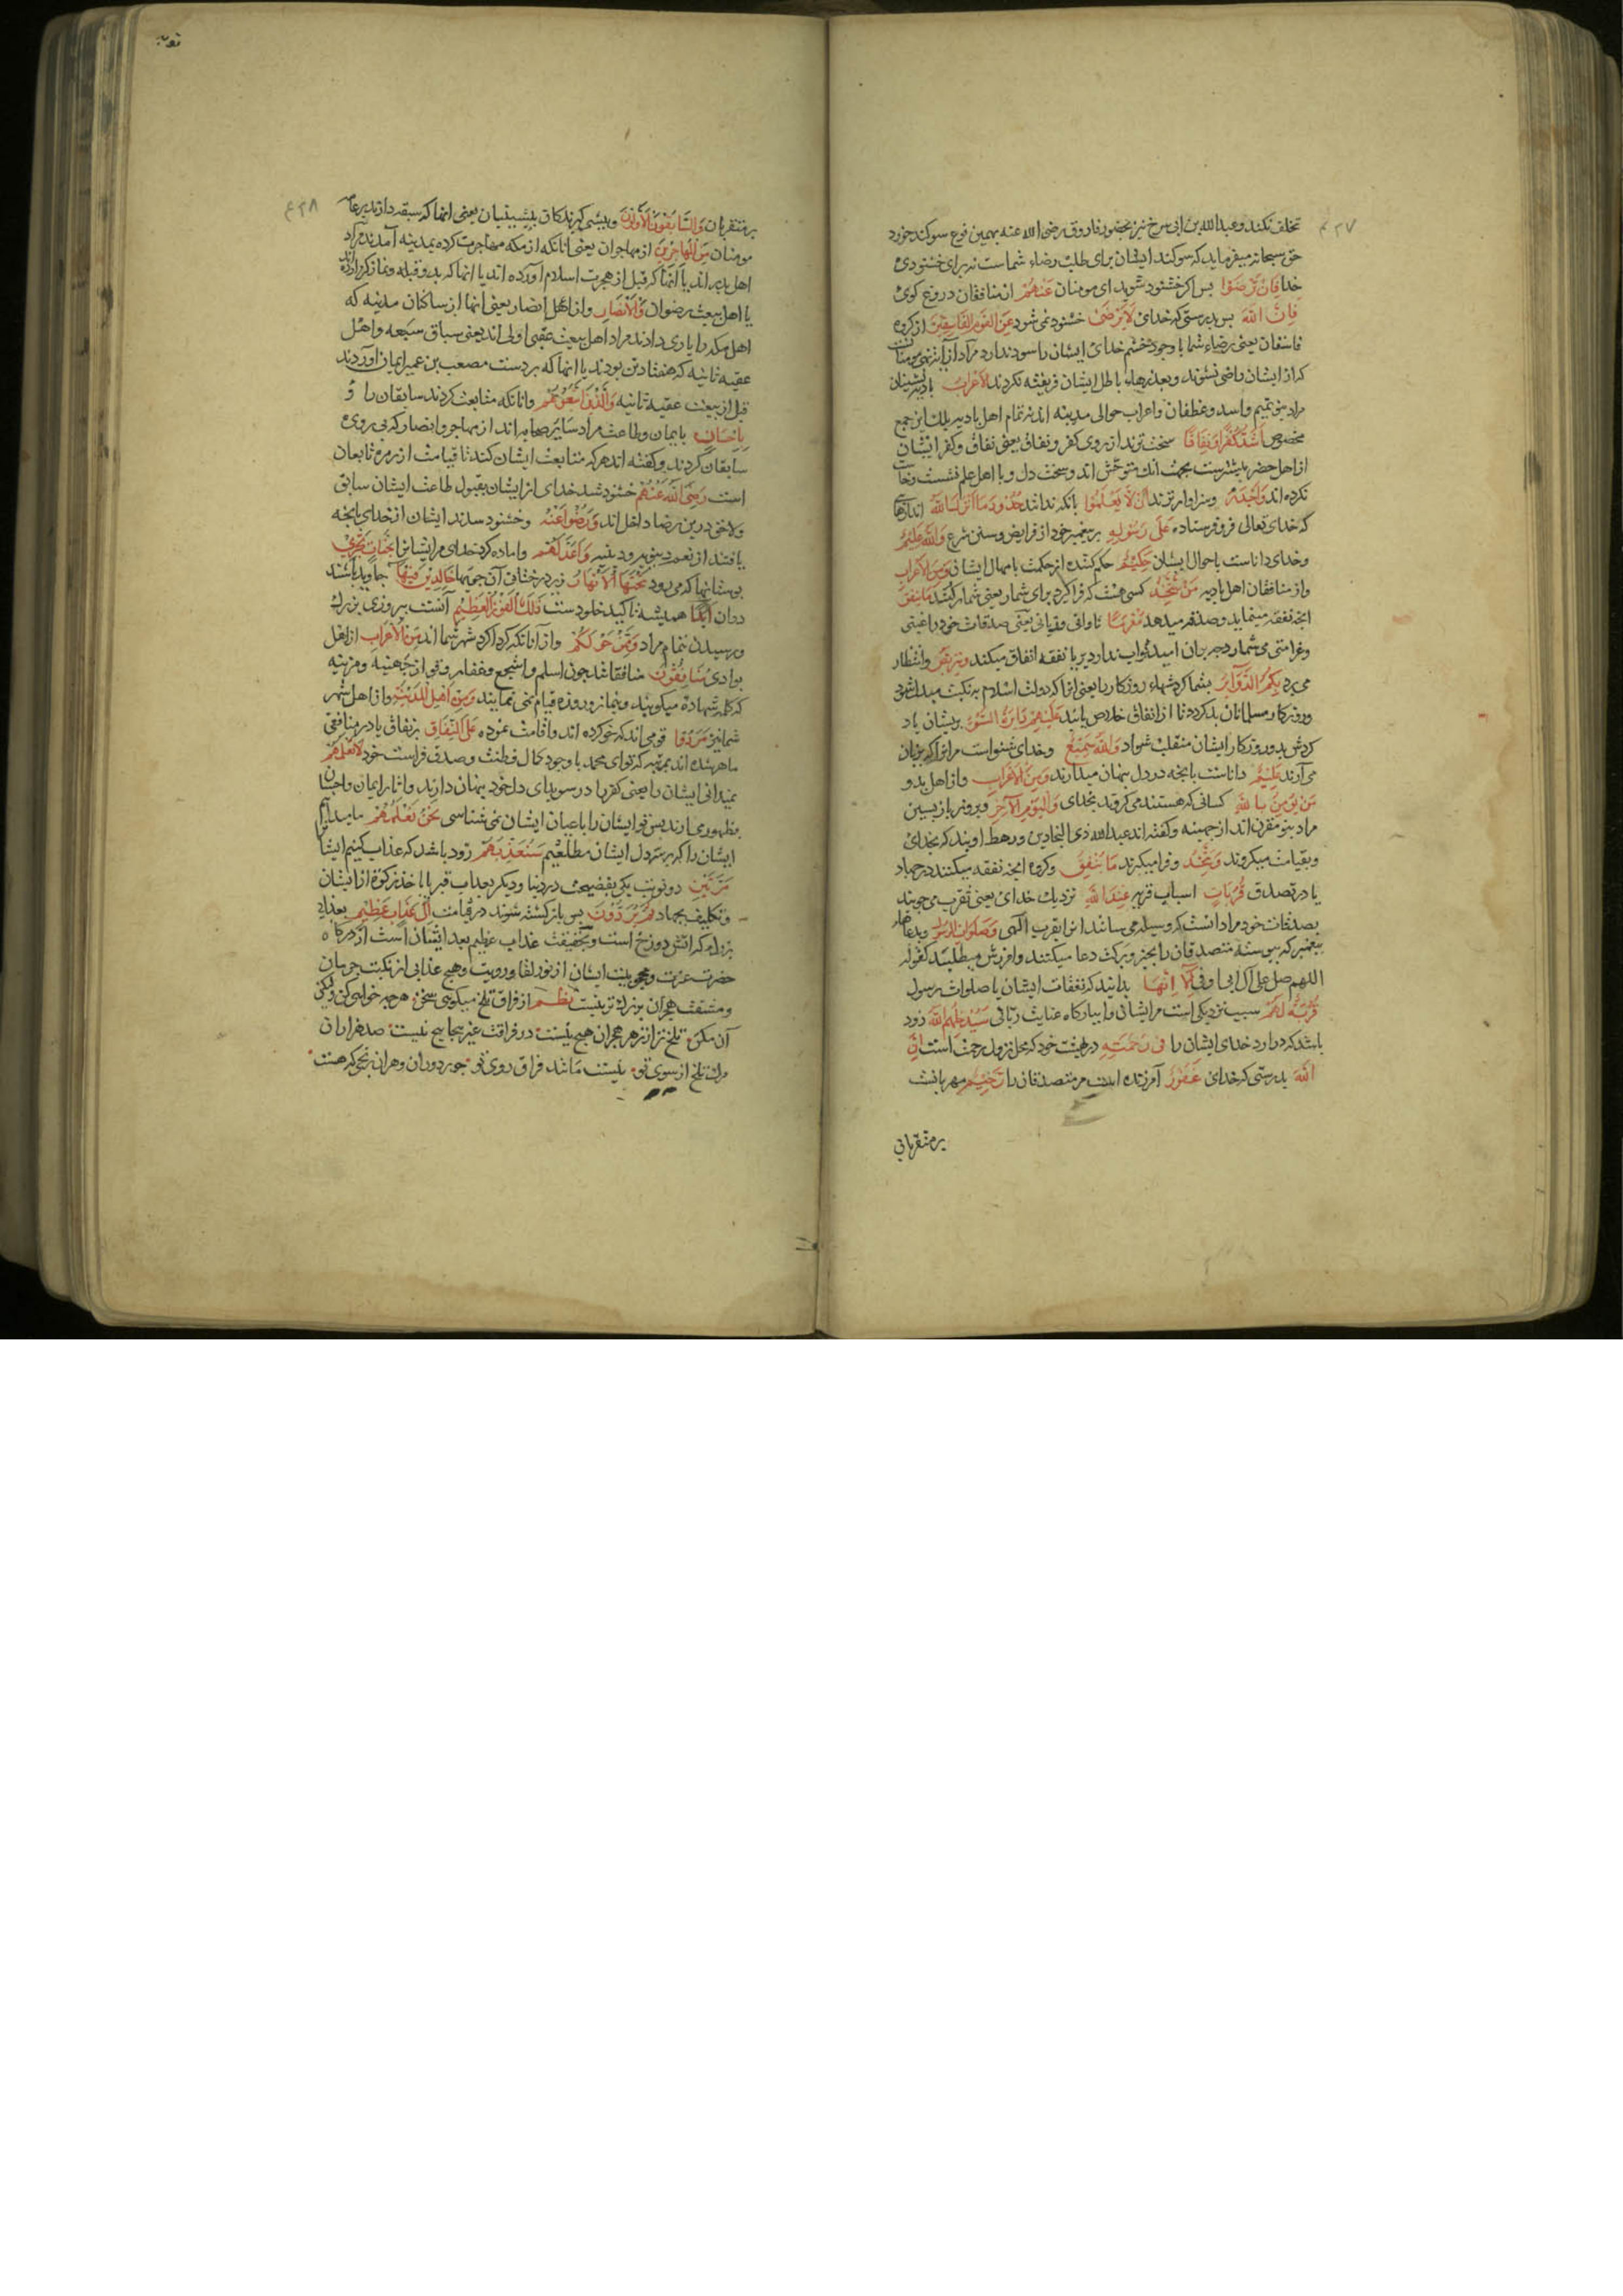 تخلف نکند وعبدالله بن ابی سرح نیز بحضور فاروق رضی الله عنه بهمین نوع سوکند خورد
حق سبحانه میفرماید که سوکند ایشان برای طلب رضاء شماست نه برای خشنودی
خدا فَاِنْ تَرْضَوْا پس اکر خشنود شوید ای مومنان عَنْهُمْ از منافقان دروغ کوی
فَاِنَّ اللّٰهَ پس بدرستی که خدای لَا يَرْضٰى خشنود نمی شود عَنِ الْقَوْمِ الْفَاسِقِينَ از کروه
فاسقان یعنی رضاء شما با وجود خشم خدای ایشان را سود ندارد مراد از آیه نهی مومنانست
که از ایشان راضی نشوند وبعذرهاء باطل ایشان فریفته نکردند اَلْاَعْرَابُ بادیه نشینان
مراد بنو تمیم واسد وغطفان واعراب حوالی مدینه اند نه تمام اهل بادیه بلک این جمع
مخصوص اَشَدُّ كُفْرًا وَنِفَاقًا سخت ترند از روی کفر ونفاق یعنی نفاق وکفر ایشان
از اهل حضر بیشترست بجهت آنک متوحش اند وسخت دل وبا اهل علم نشست وخاست
نکرده اند وَاَجْدَرُ وسزاوار ترند اَنْ لَا يَعْلَمُوا بانکه ندانند حُدُودَ مَا اَنْزَلَ اللّٰهُ اندازهای
که خدای تعالی فرو فرستاده عَلٰى رَسُولِهِ بر پیغمبر خود از فرایض وسنن شرع وَاللّٰهُ عَلِيمٌ
وخدای داناست باحوال ایشان حَكِيمٌ حکم کننده از حکمت بامهال ایشان وَمِنَ الْاَعْرَابِ
واز منافقان اهل بادیه مَنْ يَتَّخِذُ کسی هست که فرا کیرد برای شمار یعنی شمار کند مَا يُنْفِقُ
انچه نفقه مینماید وصدقه میدهد مَغْرَمًا تاوانی وزیانی یعنی صدقات خود را غبنی
وغرامتی می شمارد چه بران امید ثواب ندارد بریا نفقه انفاق میکند وَيَتَرَبَّصُ وانتظار
می برد بِكُمُ الدَّوَآئِرَ بشما کردشهاء روزکار را یعنی انرا که دولت اسلام به نکبت مبدل شود
وروزکار مسلمانان بد کردد تا از انفاق خلاص یابند عَلَيْهِمْ دَآئِرَةُ السَّوْءِ بریشان باد
کردش بد وروزکار ایشان منقلب شواد وَاللّٰهُ سَمِيعٌ وخدای شنواست مرانرا که بزبان
می آرند عَلِيمٌ داناست بانچه در دل پنهان میدارند وَمِنَ الْاَعْرَابِ واز اهل بدو
مَنْ يُؤْمِنُ بِاللّٰهِ کسانی که هستند می کروند بخدای وَالْيَوْمِ الْآخِرِ وبروز باز پسین
مراد بنو مقرن اند از جهینه وکفته اند عبدالله ذی البجادین ورهط اویند که بخدای
وبقیامت میکروند وَيَتَّخِذُ وفرا میکیرند مَا يُنْفِقُ وکروه انچه نفقه میکنند در جهاد
یا در تصدق قُرُبَاتٍ اسباب قربه عِنْدَ اللّٰهِ نزدیک خدای یعنی تقرب می جویند
بصدقات خود مراد انست که وسیله می سانند انرا بقرب الهی وَصَلَوَاتِ الرَّسُولِ وبدعاهاء
پیغمبر که پیوسته متصدقان را بخیر وبرکت دعا میکنند وامرزش میطلبند کقوله
اللهم صل علی آل ابی اوفی اَلَا اِنَّهَا بدانید که نفقات ایشان یا صلوات رسول
قُرْبَةٌ لَهُمْ سبب نزدیکی است مر ایشانرا ببارکاه عنایت ربانی سَيُدْخِلُهُمُ اللّٰهُ زود
باشد که درارد خدای ایشان را فِي رَحْمَتِهِ در بهشت خود که محل نزول رحمت است اِنَّ
اللّٰهَ بدرستی که خدای غَفُورٌ آمرزنده است مر متصدقان را رَحِيمٌ مهربانست
بر متقربان
توبه
۴۲۸
بر متقربان وَالسَّابِقُونَ الْاَوَّلُونَ وپیشی کیرندکان پیشینیان یعنی انها که سبقه دارند بر عامه
مومنان مِنَ الْمُهَاجِرِينَ از مهاجران یعنی آنانکه از مکه مهاجرت کرده بمدینه آمدند مراد
اهل بدر اند یا آنها که قبل از هجرت اسلام آورده اند یا انها که بدو قبله ونماز کزارده اند
یا اهل بیعت رضوان وَالْاَنْصَارِ واز اهل انصار یعنی انها از ساکنان مدینه که
اهل مکه را یاری دادند مراد اهل بیعت عقبه اولی اند یعنی سباق سبعه واهل
عقبه ثانیه که هفتاد تن بودند یا انها که بر دست مصعب بن عمیر ایمان اوردند
قبل از بیعت عقبه ثانیه وَالَّذِينَ اتَّبَعُوهُمْ وانانکه متابعت کردند سابقان را و
بِاِحْسَانٍ بایمان وطاعت مراد سایر صحابه اند از مهاجر وانصار که پی روی
سابقان کردند وکفته اند هر که متابعت ایشان کند تا قیامت از زمره تابعان
است رَضِيَ اللّٰهُ عَنْهُمْ خشنود شد خدای از ایشان بقبول طاعت ایشان سابق
ولاحق درین رضا داخل اند وَرَضُوا عَنْهُ وخشنود شدند ایشان از خدای بانچه
یافتند از نعم دینیه ودنیویه وَاَعَدَّ لَهُمْ واماده کرد خدای مر ایشانرا جَنَّاتٍ تَجْرِي
بوستانها که می رود تَحْتَهَا الْاَنْهَارُ زیر درختان آن جویها خَالِدِينَ فِيهَا جاوید باشند
دران اَبَدًا همیشه تاکید خلودست ذٰلِكَ الْفَوْزُ الْعَظِيمُ آنست پیروزی بزرک
ورسیدن بتمام مراد وَمِمَّنْ حَوْلَكُمْ واز آنانکه کرداکرد شهر شما اند مِنَ الْاَعْرَابِ از اهل
بوادی مُنَافِقُونَ منافقانند چون اسلم واشجع وغفار وقومی از جهینه ومزینه
که کلمه شهادة میکویند ونماز وروزه قیام می نمایند وَمِنْ اَهْلِ الْمَدِينَةِ واز اهل شهر
شما نیز مَرَدُوا قومی اند که خو کرده اند واقامت نموده عَلَى النِّفَاقِ بر نفاق یا در منافقی
ماهر شده اند بمرتبه که تو ای محمد با وجود کمال فطنت وصدق فراست خود لَا تَعْلَمُهُمْ
نمیدانی ایشان را یعنی کفر را در سویدای دل خود پنهان دارند واثار ایمان واحسان
بظهور می ارند پس تو ایشان را باعیان ایشان نمی شناسی نَحْنُ نَعْلَمُهُمْ ما میدانیم
ایشان را که بر سر دل ایشان مطلعیم سَنُعَذِّبُهُمْ زود باشد که عذاب کنیم ایشانرا
مَرَّتَيْنِ دو نوبت یکی بفضیحت در دنیا ودیکر بعذاب قبر یا باخذ زکوة از ایشان
وتکلیف بجهاد ثُمَّ يُرَدُّونَ پس باز کشته شوند در قیامت اِلٰى عَذَابٍ عَظِيمٍ بعذاب
بزرک که اتش دوزخ است وبحقیقت عذاب عظیم بعد ایشان است از درکاه
حضرت عزت ومحجوبیت ایشان از نور لقا ورویت وهیچ عذابی از نکبت حرمان
ومشقت هجران بزرک تر نیست نظم از فراق تلخ میکویی سخن هرچه خواهی کن ولیکن
آن مکن تلخ تر از زهر هجران هیچ نیست در فراقت غیر پیچا پیچ نیست صد هزاران
مرک تلخ از سوی تو نیست مانند فراق روی تو جور دوران وهران رنجی که هست